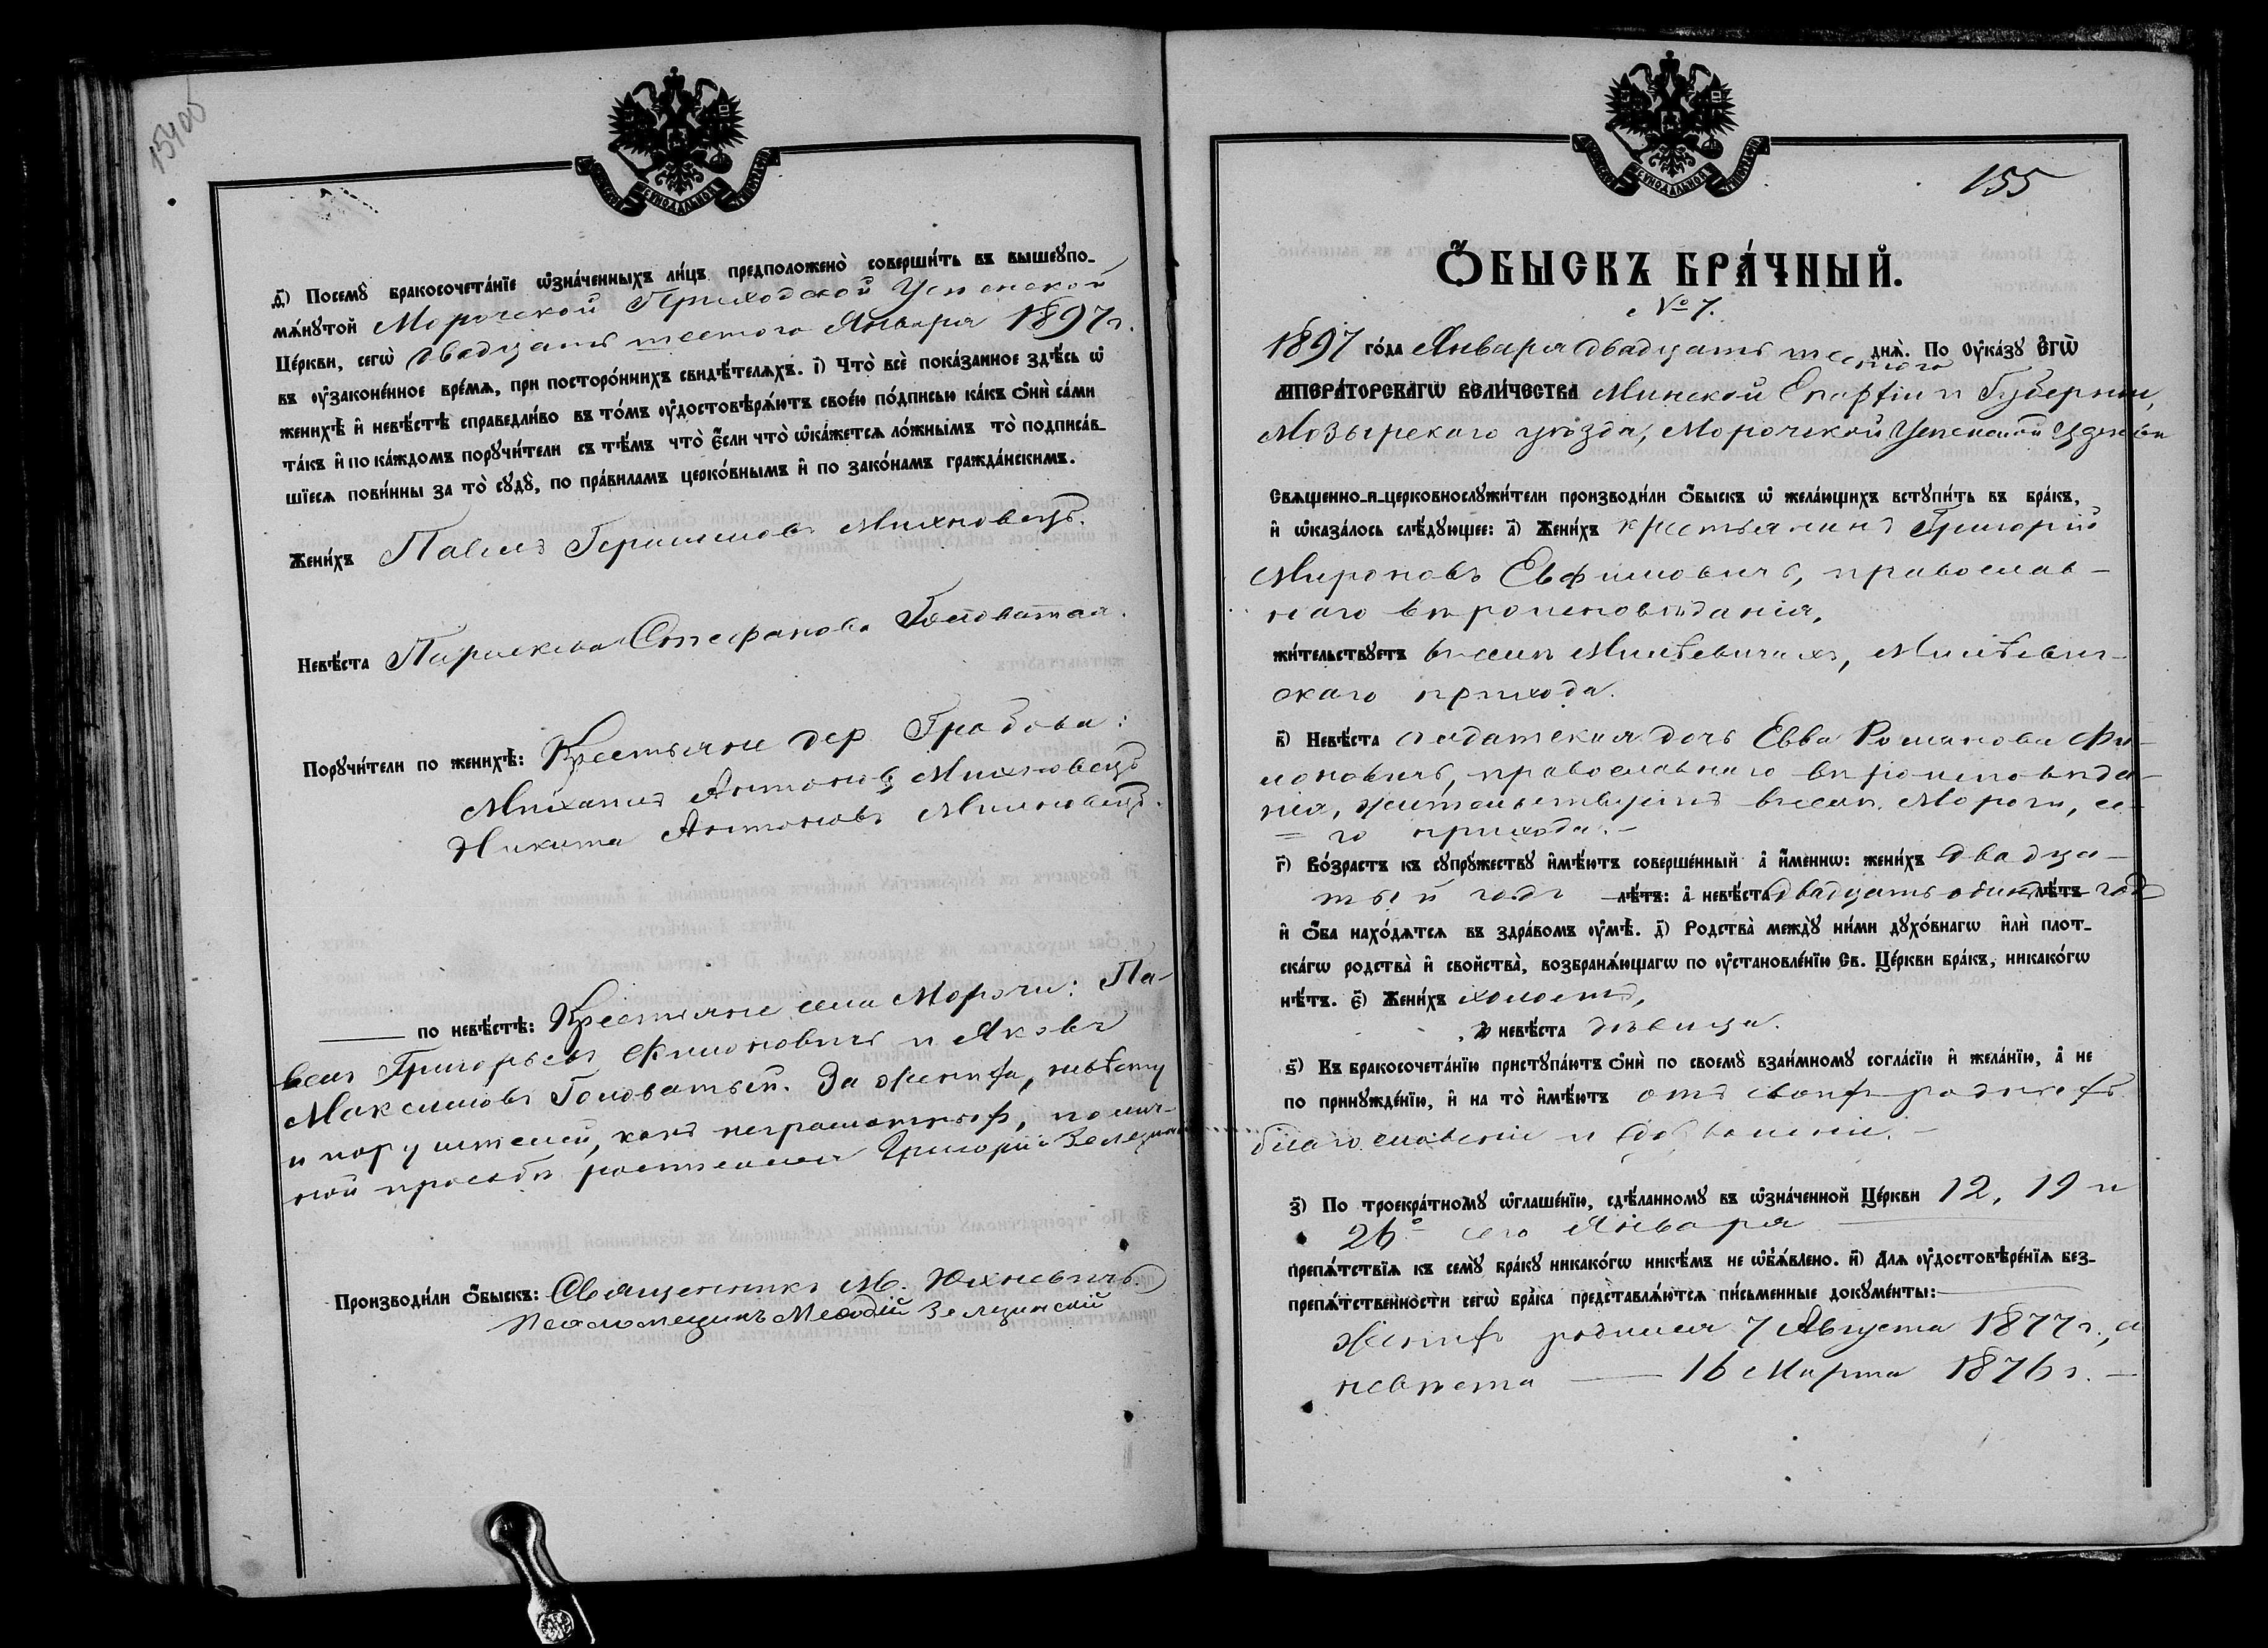 15400
СУНОДАЛЬНОЙ
д҃) Посемꙋ̀ бракосочета́нїе ѡ҆зна́ченныхъ ли́цъ предположено̀ соверши́ть въ вышеꙋпо-
мѧ́нꙋтой Морочской Приходской Успенской
Це́ркви, сегѡ̀ двадцать шестого Января 1897 г.
въ ᲂу҆законе́нное вре́мѧ, при посторо́ннихъ свидѣ́телѧхъ. і҃) Что̀ всѐ пока́занное здѣ́сь ѡ҆
женихѣ̀ и҆ невѣ́стѣ справедли́во въ то́мъ ᲂу҆достовѣрѧ́ютъ свое́ю по́дписью ка́къ ѻ҆нѝ са́ми
та́къ и҆ по ка́ждомъ порꙋчи́тели съ тѣ́мъ что̀ є҆́сли что̀ ѡ҆ка́жетсѧ ло́жнымъ то̀ подписа́в-
шїесѧ пови́нны за то̀ сꙋдꙋ̀, по пра́виламъ церко́внымъ и҆ по зако́намъ гражда́нскимъ.
Жени́хъ Павелъ Герасимовъ Михновецъ.
Невѣ́ста Параскева Стефанова Головатая.
Порꙋчи́тели по женихѣ̀: Крестьяне дер. Грабова:
Михаилъ Антоновъ Михновецъ
Никита Антоновъ Михновецъ.
по невѣ́стѣ: Крестьяне села Морочи: Па-
велъ Григорьевъ Филоновичъ и Яковъ
Максимовъ Головатый. За жениха, невѣсту
и поручителей, какъ неграмотныхъ, по лич-
ной просьбѣ росписался Григорій Зелезин
Производи́ли ѻ҆́быскъ: Священникъ М. Юхневичъ
Псаломщикъ Меѳодій Зелезинскій
СУНОДАЛЬНОЙ
155
Ѻ҆́БЫСКЪ БРА́ЧНЫЙ.
№ 7.
1897 го́да Января двадцать шестого днѧ̀. По ᲂу҆ка́зꙋ Є҆ГѠ̀
И҆МПЕРА́ТОРСКАГѠ ВЕЛИ́ЧЕСТВА Минской Епархіи и Губерніи,
Мозырскаго уѣзда, Морочской Успенской Церкви
Свѧще́нно-и-церковнослꙋжи́тели производи́ли ѻ҆́быскъ ѡ҆ жела́ющихъ встꙋпи́ть въ бра́къ,
и҆ ѡ҆каза́лось слѣ́дꙋющее: а҃) Жени́хъ крестьянинъ Григорій
Мироновъ Евфимовичъ, православ-
наго вѣроисповѣданія,
жи́тельствꙋетъ въ селѣ Милѣвичахъ, Милѣвич-
скаго прихода.
в҃) Невѣ́ста солдатская дочь Евва Романова Фи-
лоновичъ, православнаго вѣроисповѣда-
нія, жительствуетъ въ сел. Морочи, се-
= го прихода. -
г҃) Во́зрастъ къ сꙋпрꙋ́жествꙋ и҆мѣ́ютъ соверше́нный а҆ и҆́меннѡ: жени́хъ двадца-
тый годъ лѣ́тъ: а҆ невѣ́ста двадцать одинъ лѣ́тъ годъ
и҆ ѻ҆́ба нахо́дѧтсѧ въ здра́вомъ ᲂу҆мѣ̀. д҃) Родства̀ междꙋ̀ ни́ми дꙋхо́внагѡ и҆лѝ плот-
ска́гѡ родства̀ и҆ свойства̀, возбранѧ́ющагѡ по ᲂу҆становле́нїю Св. Це́ркви бра́къ, никако́гѡ
нѣ́тъ. є҃) Жени́хъ холостъ,
а҆ невѣ́ста дѣвица.
ѕ҃) Къ бракосочета́нїю пристꙋпа́ютъ ѻ҆нѝ по своемꙋ̀ взаи́мномꙋ согла́сїю и҆ жела́нїю, а҆ не
по принꙋжде́нїю, и҆ на то̀ и҆мѣ́ютъ отъ своихъ родныхъ
благословеніе и дозволеніе. -
з҃) По троекра́тномꙋ ѡ҆глаше́нїю, сдѣ́ланномꙋ въ ѡ҆зна́ченной Це́ркви 12, 19 и
26 сего Января
препѧ́тствїѧ къ семꙋ̀ бра́кꙋ никако́гѡ никѣ́мъ не ѡ҆б̾ѧ́влено. и҃) Длѧ ᲂу҆достовѣре́нїѧ без-
препѧ́тственности сегѡ̀ бра́ка представлѧ́ютсѧ пи́сьменные докꙋме́нты:
Женихъ родился 7 Августа 1877 г., а
невѣста — 16 Марта 1876 г. -